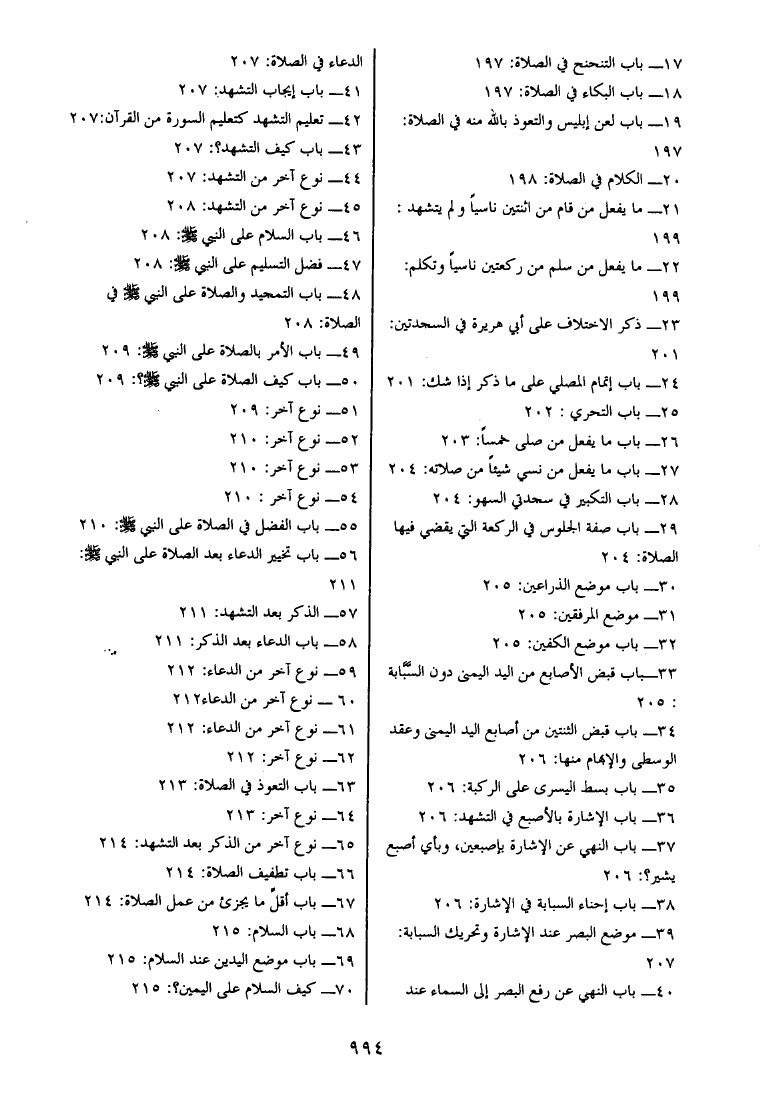 ١٧ــ باب التنحنح في الصلاة: ١٩٧
١٨ــ باب البكاء في الصلاة: ١٩٧
١٩ــ باب لعن إبليس والتعوذ بالله منه في الصلاة:
١٩٧
٢٠ــ الكلام في الصلاة: ١٩٨
٢١ــ ما يفعل من قام من اثنتين ناسياً و لم يتشهد :
١٩٩
٢٢ــ ما يفعل من سلم من ركعتين ناسياً وتكلم:
١٩٩
٢٣ــ ذكر الاختلاف على أبي هريرة في السجدتين:
٢٠١
٢٤ــ باب إتمام المصلي على ما ذكر إذا شك: ٢٠١
٢٥ــ باب التحري : ٢٠٢
٢٦ــ باب ما يفعل من صلى خمساً: ٢٠٣
٢٧ــ باب ما يفعل من نسي شيئاً من صلاته: ٢٠٤
٢٨ــ باب التكبير في سجدتي السهو: ٢٠٤
٢٩ــ باب صفة الجلوس في الركعة التي يقضي فيها
الصلاة: ٢٠٤
٣٠ــ باب موضع الذراعين: ٢٠٥
٣١ــ موضع المرفقين: ٢٠٥
٣٢ــ باب موضع الكفين: ٢٠٥
٣٣ــباب قبض الأصابع من اليد اليمنى دون السَّبَّابة
: ٢٠٥
٣٤ــ باب قبض الثنتين من أصابع اليد اليمنى وعقد
الوسطى والإبهام منها: ٢٠٦
٣٥ــ باب بسط اليسرى على الركبة: ٢٠٦
٣٦ــ باب الإشارة بالأصبع في التشهد: ٢٠٦
٣٧ــ باب النهي عن الإشارة بإصبعين، وبأي أصبع
يشير؟: ٢٠٦
٣٨ــ باب إحناء السبابة في الإشارة: ٢٠٦
٣٩ــ موضع البصر عند الإشارة وتحريك السبابة:
٢٠٧
٤٠ــ باب النهي عن رفع البصر إلى السماء عند
الدعاء في الصلاة: ٢٠٧
٤١ــ باب إيجاب التشهد: ٢٠٧
٤٢ــ تعليم التشهد كتعليم السورة من القرآن:٢٠٧
٤٣ــ باب كيف التشهد؟: ٢٠٧
٤٤ــ نوع آخر من التشهد: ٢٠٧
٤٥ــ نوع آخر من التشهد: ٢٠٨
٤٦ــ باب السلام على النبي ﷺ: ٢٠٨
٤٧ــ فضل التسليم على النبي ﷺ: ٢٠٨
٤٨ــ باب التمجيد والصلاة على النبي ﷺ في
الصلاة: ٢٠٨
٤٩ــ باب الأمر بالصلاة على النبي ﷺ: ٢٠٩
٥٠ــ باب كيف الصلاة على النبي ﷺ؟: ٢٠٩
٥١ــ نوع آخر: ٢٠٩
٥٢ــ نوع آخر: ٢١٠
٥٣ــ نوع آخر: ٢١٠
٥٤ــ نوع آخر : ٢١٠
٥٥ــ باب الفضل في الصلاة على النبي ﷺ: ٢١٠
٥٦ــ باب تخيير الدعاء بعد الصلاة على النبي ﷺ:
٢١١
٥٧ــ الذكر بعد التشهد: ٢١١
٥٨ــ باب الدعاء بعد الذكر: ٢١١
٥٩ــ نوع آخر من الدعاء: ٢١٢
٦٠ ــ نوع آخر من الدعاء٢١٢
٦١ــ نوع آخر من الدعاء: ٢١٢
٦٢ــ نوع آخر: ٢١٢
٦٣ــ باب التعوذ في الصلاة: ٢١٣
٦٤ــ نوع آخر: ٢١٣
٦٥ــ نوع آخر من الذكر بعد التشهد: ٢١٤
٦٦ــ باب تطفيف الصلاة: ٢١٤
٦٧ــ باب أقلّ ما يجزئ من عمل الصلاة: ٢١٤
٦٨ــ باب السلام: ٢١٥
٦٩ــ باب موضع اليدين عند السلام: ٢١٥
٧٠ــ كيف السلام على اليمين؟: ٢١٥
٩٩٤